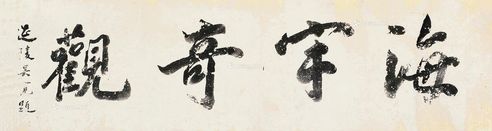 海宇奇觀
延陵吳寬題